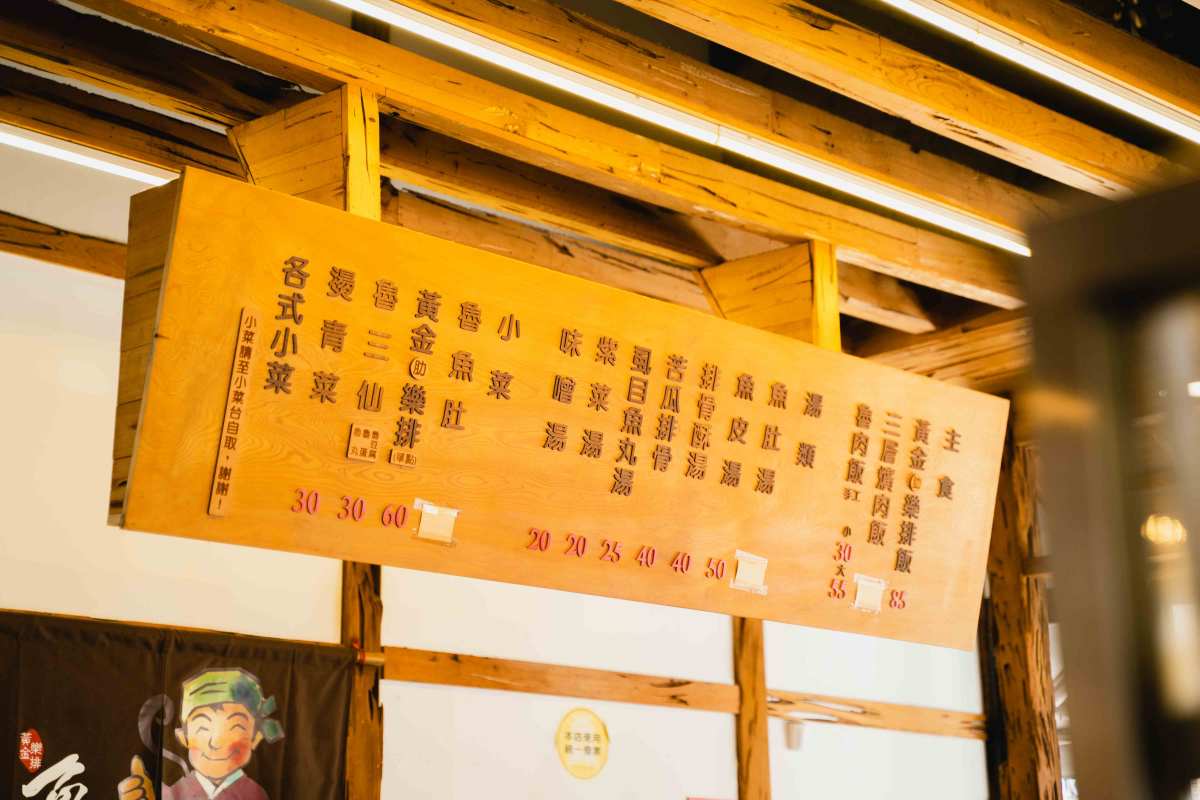 主食
黃金㊙樂排飯 85
三層爌肉飯
魯肉飯 小30 大55
湯類
魚肚湯
魚皮湯 50
排骨酥湯 40
苦瓜排骨 40
虱目魚丸湯 25
紫菜湯 20
味噌湯 20
小菜
魯魚肚
黃金(肋)樂排(單點) 60
魯三仙
燙青菜 30
各式小菜 30
小菜請至小菜台自取，謝謝！
本店使用
統一發票
黃金
樂排